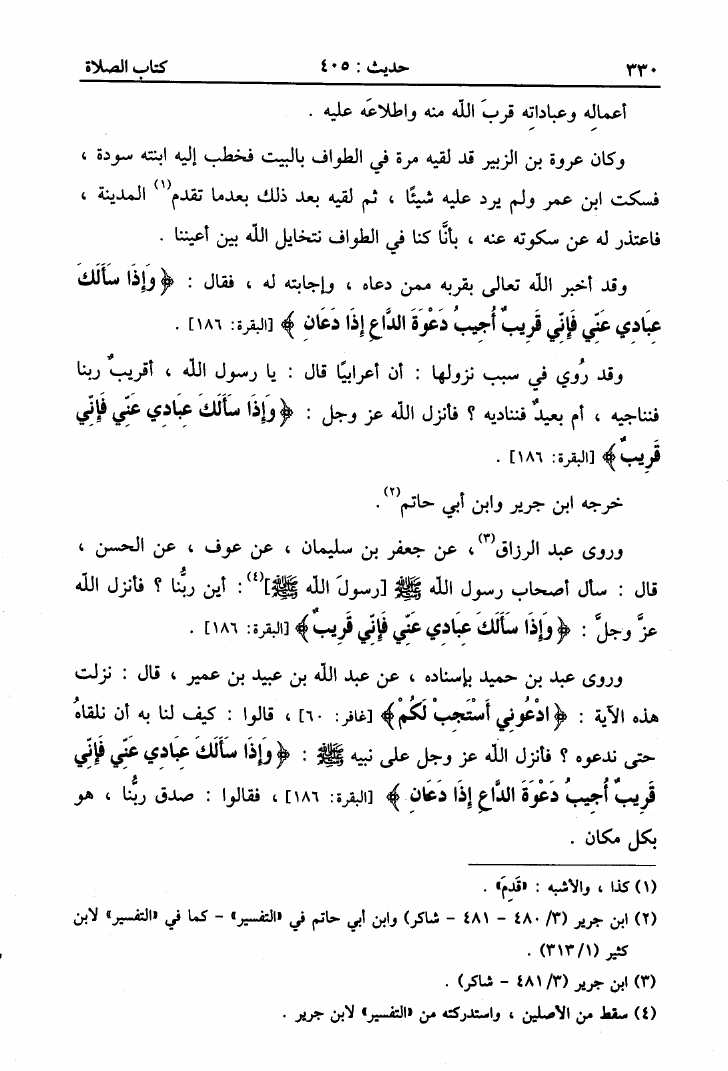 ٣٣٠ حديث : ٤٠٥ كتاب الصلاة
أعمالِه وعباداتِه قربَ اللّه منه واطلاعَه عليه .
وكان عروة بن الزبير قد لقيه مرة في الطواف بالبيت فخطب إليه ابنته سودة ،
فسكت ابن عمر ولم يرد عليه شيئًا ، ثم لقيه بعد ذلك بعدما تقدم(١) المدينة ،
فاعتذر له عن سكوته عنه ، بأنَّا كنا في الطواف نتخايل اللّه بين أعيننا .
وقد أخبر اللّه تعالى بقربه ممن دعاه ، وإجابته له ، فقال : ﴿ وَإِذَا سَأَلَكَ
عِبَادِي عَنِّي فَإِنِّي قَرِيبٌ أُجِيبُ دَعْوَةَ الدَّاعِ إِذَا دَعَانِ ﴾ [البقرة: ١٨٦] .
وقد رُوي في سبب نزولها : أن أعرابيًا قال : يا رسول اللّه ، أقريبٌ ربنا
فنناجيه ، أم بعيدٌ فنناديه ؟ فأنزل اللّه عز وجل : ﴿ وَإِذَا سَأَلَكَ عِبَادِي عَنِّي فَإِنِّي
قَرِيبٌ ﴾ [البقرة: ١٨٦] .
خرجه ابن جرير وابن أبي حاتم(٢).
وروى عبد الرزاق(٣)، عن جعفر بن سليمان ، عن عوف ، عن الحسن ،
قال : سأل أصحاب رسول اللّه ﷺ [رسولَ اللّه ﷺ](٤): أين ربُّنا ؟ فأنزل اللّه
عزَّ وجلَّ : ﴿ وَإِذَا سَأَلَكَ عِبَادِي عَنِّي فَإِنِّي قَرِيبٌ ﴾ [البقرة: ١٨٦] .
وروى عبد بن حميد بإسناده ، عن عبد اللّه بن عبيد بن عمير ، قال : نزلت
هذه الآية : ﴿ ادْعُونِي أَسْتَجِبْ لَكُمْ ﴾ [غافر: ٦٠] ، قالوا : كيف لنا به أن نلقاهُ
حتى ندعوه ؟ فأنزل اللّه عز وجل على نبيه ﷺ : ﴿ وَإِذَا سَأَلَكَ عِبَادِي عَنِّي فَإِنِّي
قَرِيبٌ أُجِيبُ دَعْوَةَ الدَّاعِ إِذَا دَعَانِ ﴾ [البقرة: ١٨٦] ، فقالوا : صدق ربُّنا ، هو
بكل مكان .
(١) كذا ، والأشبه : «قَدِمَ» .
(٢) ابن جرير (٣/ ٤٨٠ - ٤٨١ - شاكر) وابن أبي حاتم في «التفسير» - كما في «التفسير» لابن
كثير (١/ ٣١٣) .
(٣) ابن جرير (٣/ ٤٨١ - شاكر) .
(٤) سقط من الأصلين ، واستدركته من «التفسير» لابن جرير .